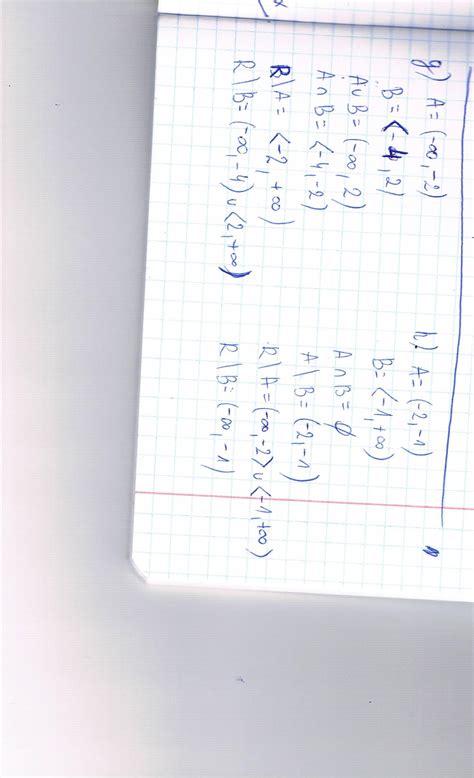 g) A = (-∞, -2)
B = <-4, 2)
A∪B = (-∞, 2)
A∩B = <-4, -2)
R\A = <-2, +∞)
R\B = (-∞, -4) ∪ <2, +∞)
h) A = (-2, -1)
B = <-1, +∞)
A∩B = ∅
A\B = (-2, -1)
R\A = (-∞, -2> ∪ <-1, +∞)
R\B = (-∞, -1)